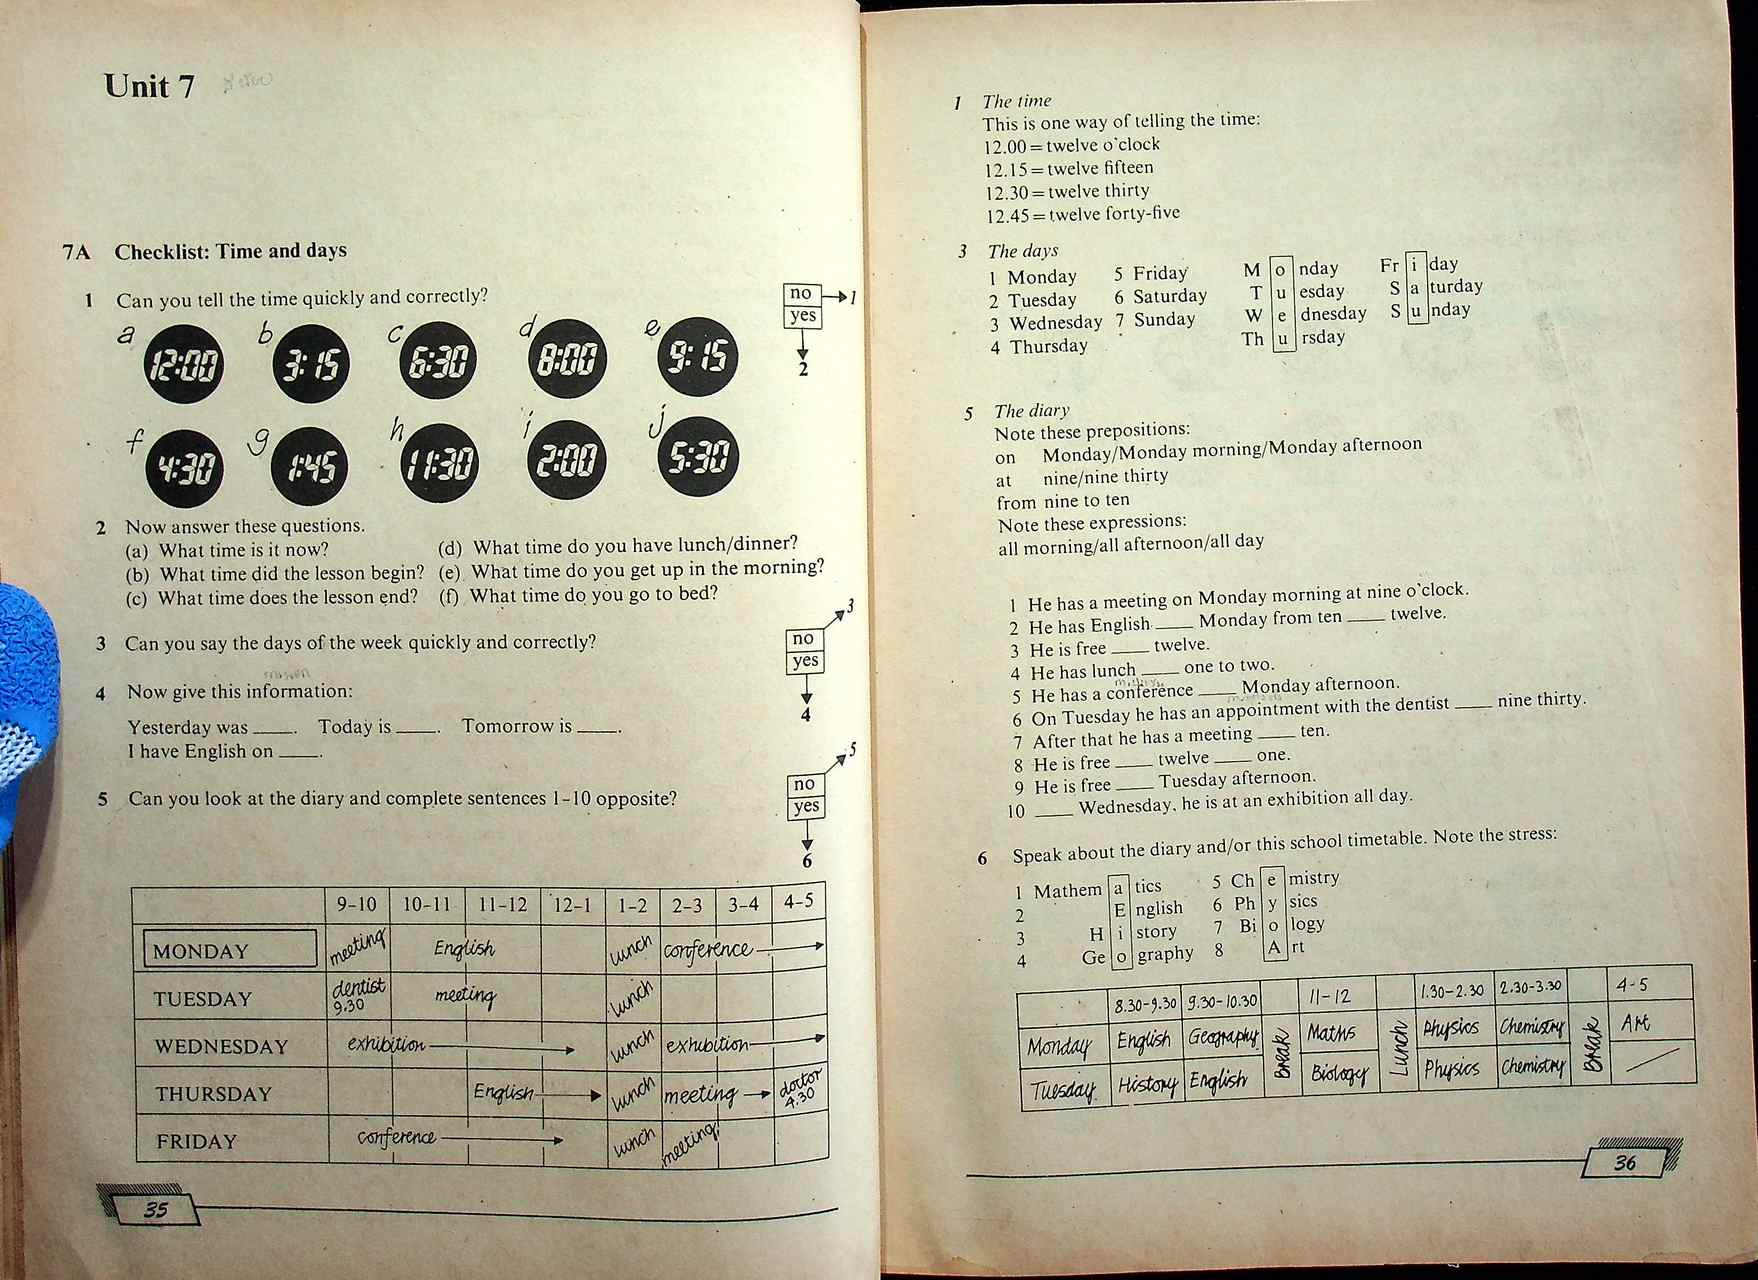 Unit 7
7A Checklist: Time and days
1 Can you tell the time quickly and correctly?
no 1
yes
2
a b c d e
12:00 3:15 6:30 8:00 9:15
f g h i j
4:30 1:45 11:30 2:00 5:30
2 Now answer these questions.
(a) What time is it now? (d) What time do you have lunch/dinner?
(b) What time did the lesson begin? (e) What time do you get up in the morning?
(c) What time does the lesson end? (f) What time do you go to bed?
3 Can you say the days of the week quickly and correctly?
no 3
yes
4
4 Now give this information:
Yesterday was ____. Today is ____. Tomorrow is ____.
I have English on ____.
5 Can you look at the diary and complete sentences 1–10 opposite?
no 5
yes
6
9–10 10–11 11–12 12–1 1–2 2–3 3–4 4–5
MONDAY meeting English lunch conference
TUESDAY dentist 9.30 meeting lunch
WEDNESDAY exhibition lunch exhibition
THURSDAY English lunch meeting doctor 4.30
FRIDAY conference lunch meeting
35
1 The time
This is one way of telling the time:
12.00 = twelve o'clock
12.15 = twelve fifteen
12.30 = twelve thirty
12.45 = twelve forty-five
3 The days
1 Monday 5 Friday M o nday Fr i day
2 Tuesday 6 Saturday T u esday S a turday
3 Wednesday 7 Sunday W e dnesday S u nday
4 Thursday Th u rsday
5 The diary
Note these prepositions:
on Monday/Monday morning/Monday afternoon
at nine/nine thirty
from nine to ten
Note these expressions:
all morning/all afternoon/all day
1 He has a meeting on Monday morning at nine o'clock.
2 He has English ____ Monday from ten ____ twelve.
3 He is free ____ twelve.
4 He has lunch ____ one to two.
5 He has a conference ____ Monday afternoon.
6 On Tuesday he has an appointment with the dentist ____ nine thirty.
7 After that he has a meeting ____ ten.
8 He is free ____ twelve ____ one.
9 He is free ____ Tuesday afternoon.
10 ____ Wednesday, he is at an exhibition all day.
6 Speak about the diary and/or this school timetable. Note the stress:
1 Mathem a tics 5 Ch e mistry
2 E nglish 6 Ph y sics
3 H i story 7 Bi o logy
4 Ge o graphy 8 A rt
8.30-9.30 9.30-10.30 11-12 1.30-2.30 2.30-3.30 4-5
Monday English Geography Break Maths Lunch Physics Chemistry Break Art
Tuesday History English Biology Physics Chemistry
36